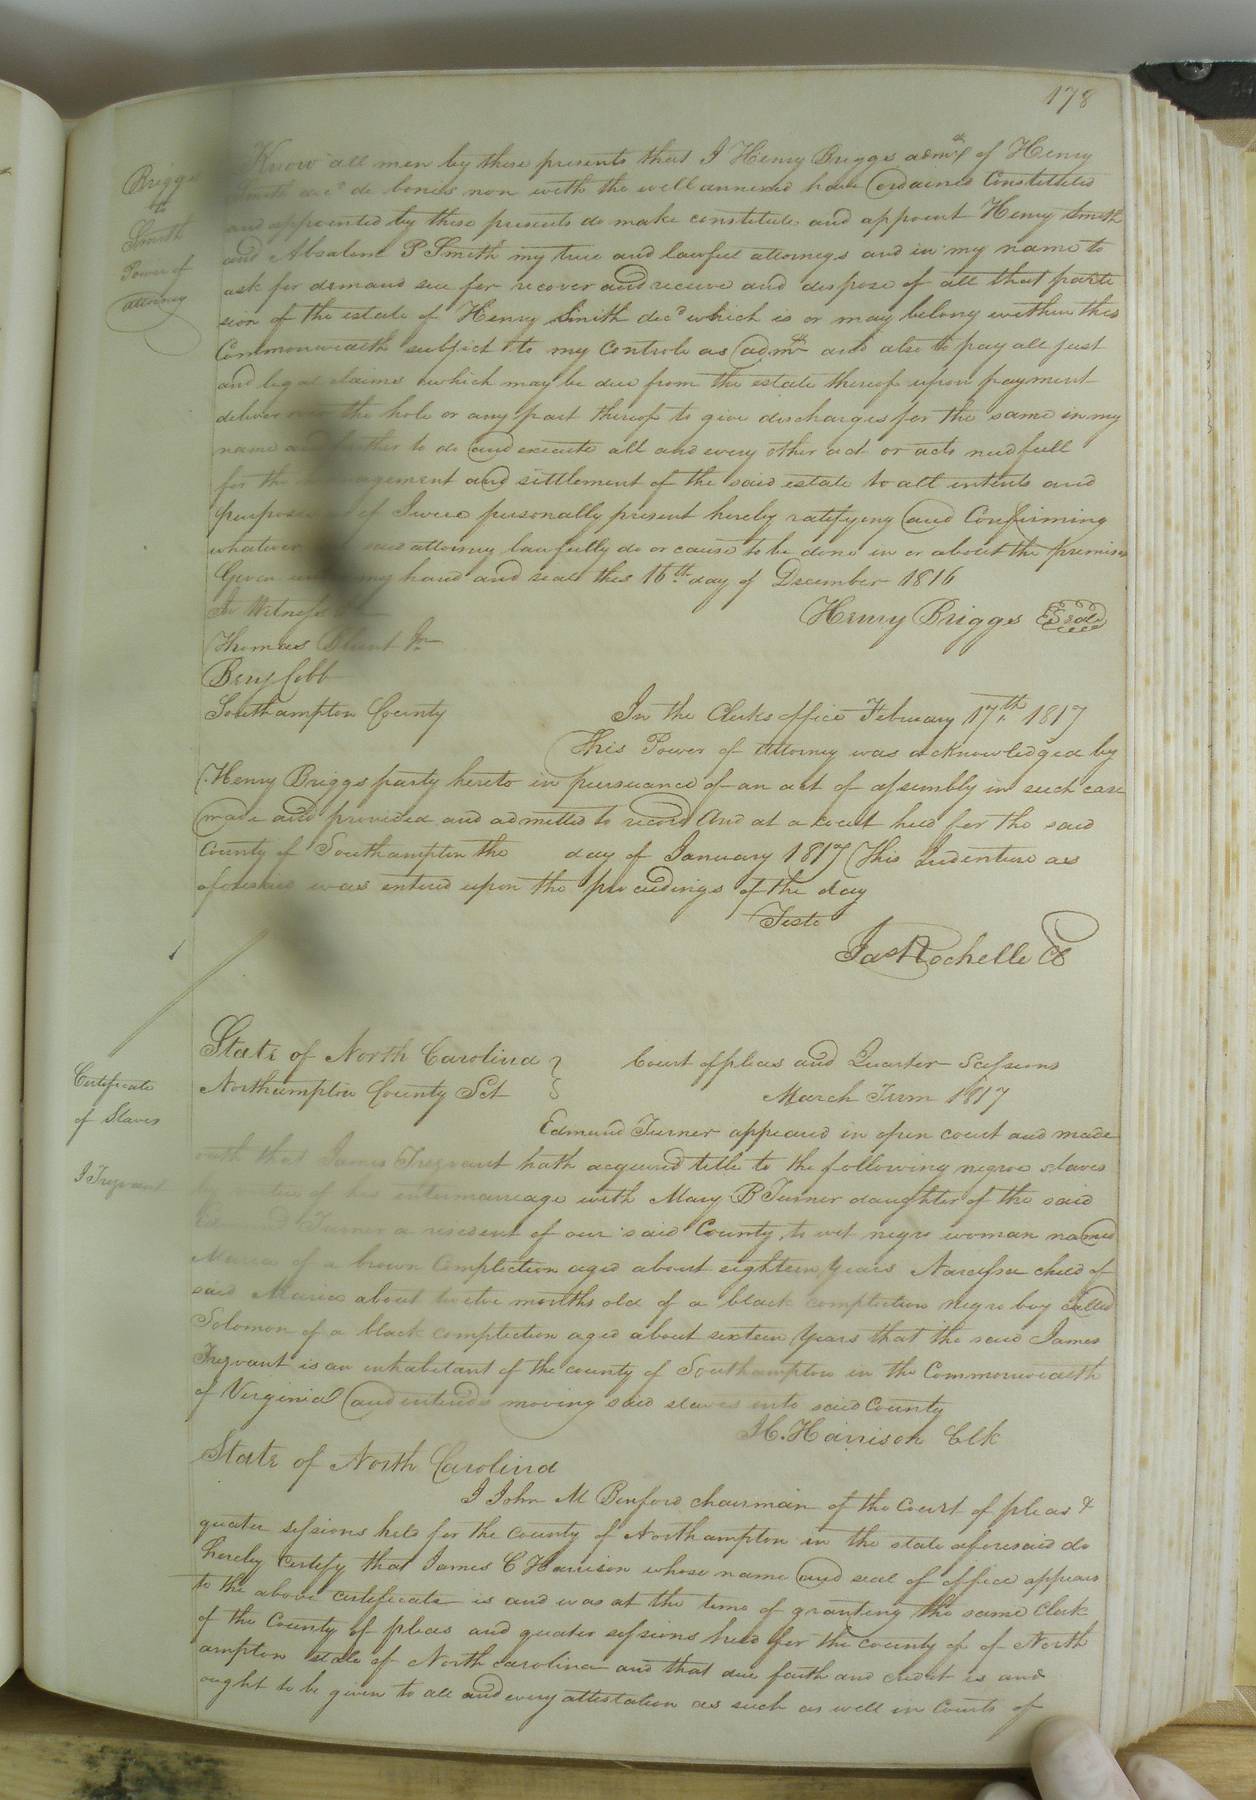 178
Briggs
to
Smith
Power of
attorney
Know all men by these presents that I Henry Briggs admr of Henry
Smith decd de bonis non with the will annexed have ordained Constituted
and appointed by these presents do make constitute and appoint Henry Smith
and Absalom P Smith my true and lawful attorneys and in my name to
ask for demand sue for recover and receive and dispose of all that parte
sion of the estate of Henry Smith decd which is or may belong within this
Commonwealth subject to my Controle as admr and also to pay all just
and legal claims which may be due from the estate thereof upon payment
deliver over the hole or any part thereof to give discharges for the same in my
name and further to do and execute all and every other act or acts needfull
for the management and settlement of the said estate to all intents and
purposes as if I were personally present hereby ratifying and Confirming
whatever said attorney lawfully do or cause to be done in or about the premises
Given under my hand and seal this 16th day of December 1816
In Witness
Henry Briggs Seal
Thomas Blunt Jr
Benj Cobb
Southampton County In the Clerks office February 17th 1817
This Power of Attorney was acknowledged by
Henry Briggs party hereto in pursuance of an act of assembly in such case
made and provided and admitted to record And at a Court held for the said
County of Southampton the day of January 1817 This Indenture as
aforesaid was entered upon the proceedings of the day
Teste
Jas Rochelle CC
Certificate
of Slaves
J Trezvant
State of North Carolina } Court of pleas and Quarter Sessions
Northampton County Sct } March Term 1817
Edmund Turner appeared in open court and made
oath that James Trezvant hath acquired title to the following negroe slaves
by virtue of his intermarreage with Mary B Turner daughter of the said
Edmund Turner a resident of our said County, to wit negro woman named
Maria of a brown Complection aged about eighteen Years Narcissa child of
said Maria about twelve months old of a black complection negro boy called
Solomon of a black complection aged about sixteen Years that the said James
Trezvant is an inhabitant of the county of Southampton in the Commonwealth
of Virginia and intends moving said slaves into said County
J C. Harrison Clk
State of North Carolina
I John M Binford chairman of the Court of pleas &
quater sessions held for the county of Northampton in the state aforesaid do
hereby certify that James C Harrison whose name and seal of office appears
to the above certificate is and was at the time of granting the same Clerk
of the County of pleas and quater sessions held for the county of of North
ampton state of North carolina and that due faith and credit is and
ought to be given to all and every attestation as such as well in Courts of